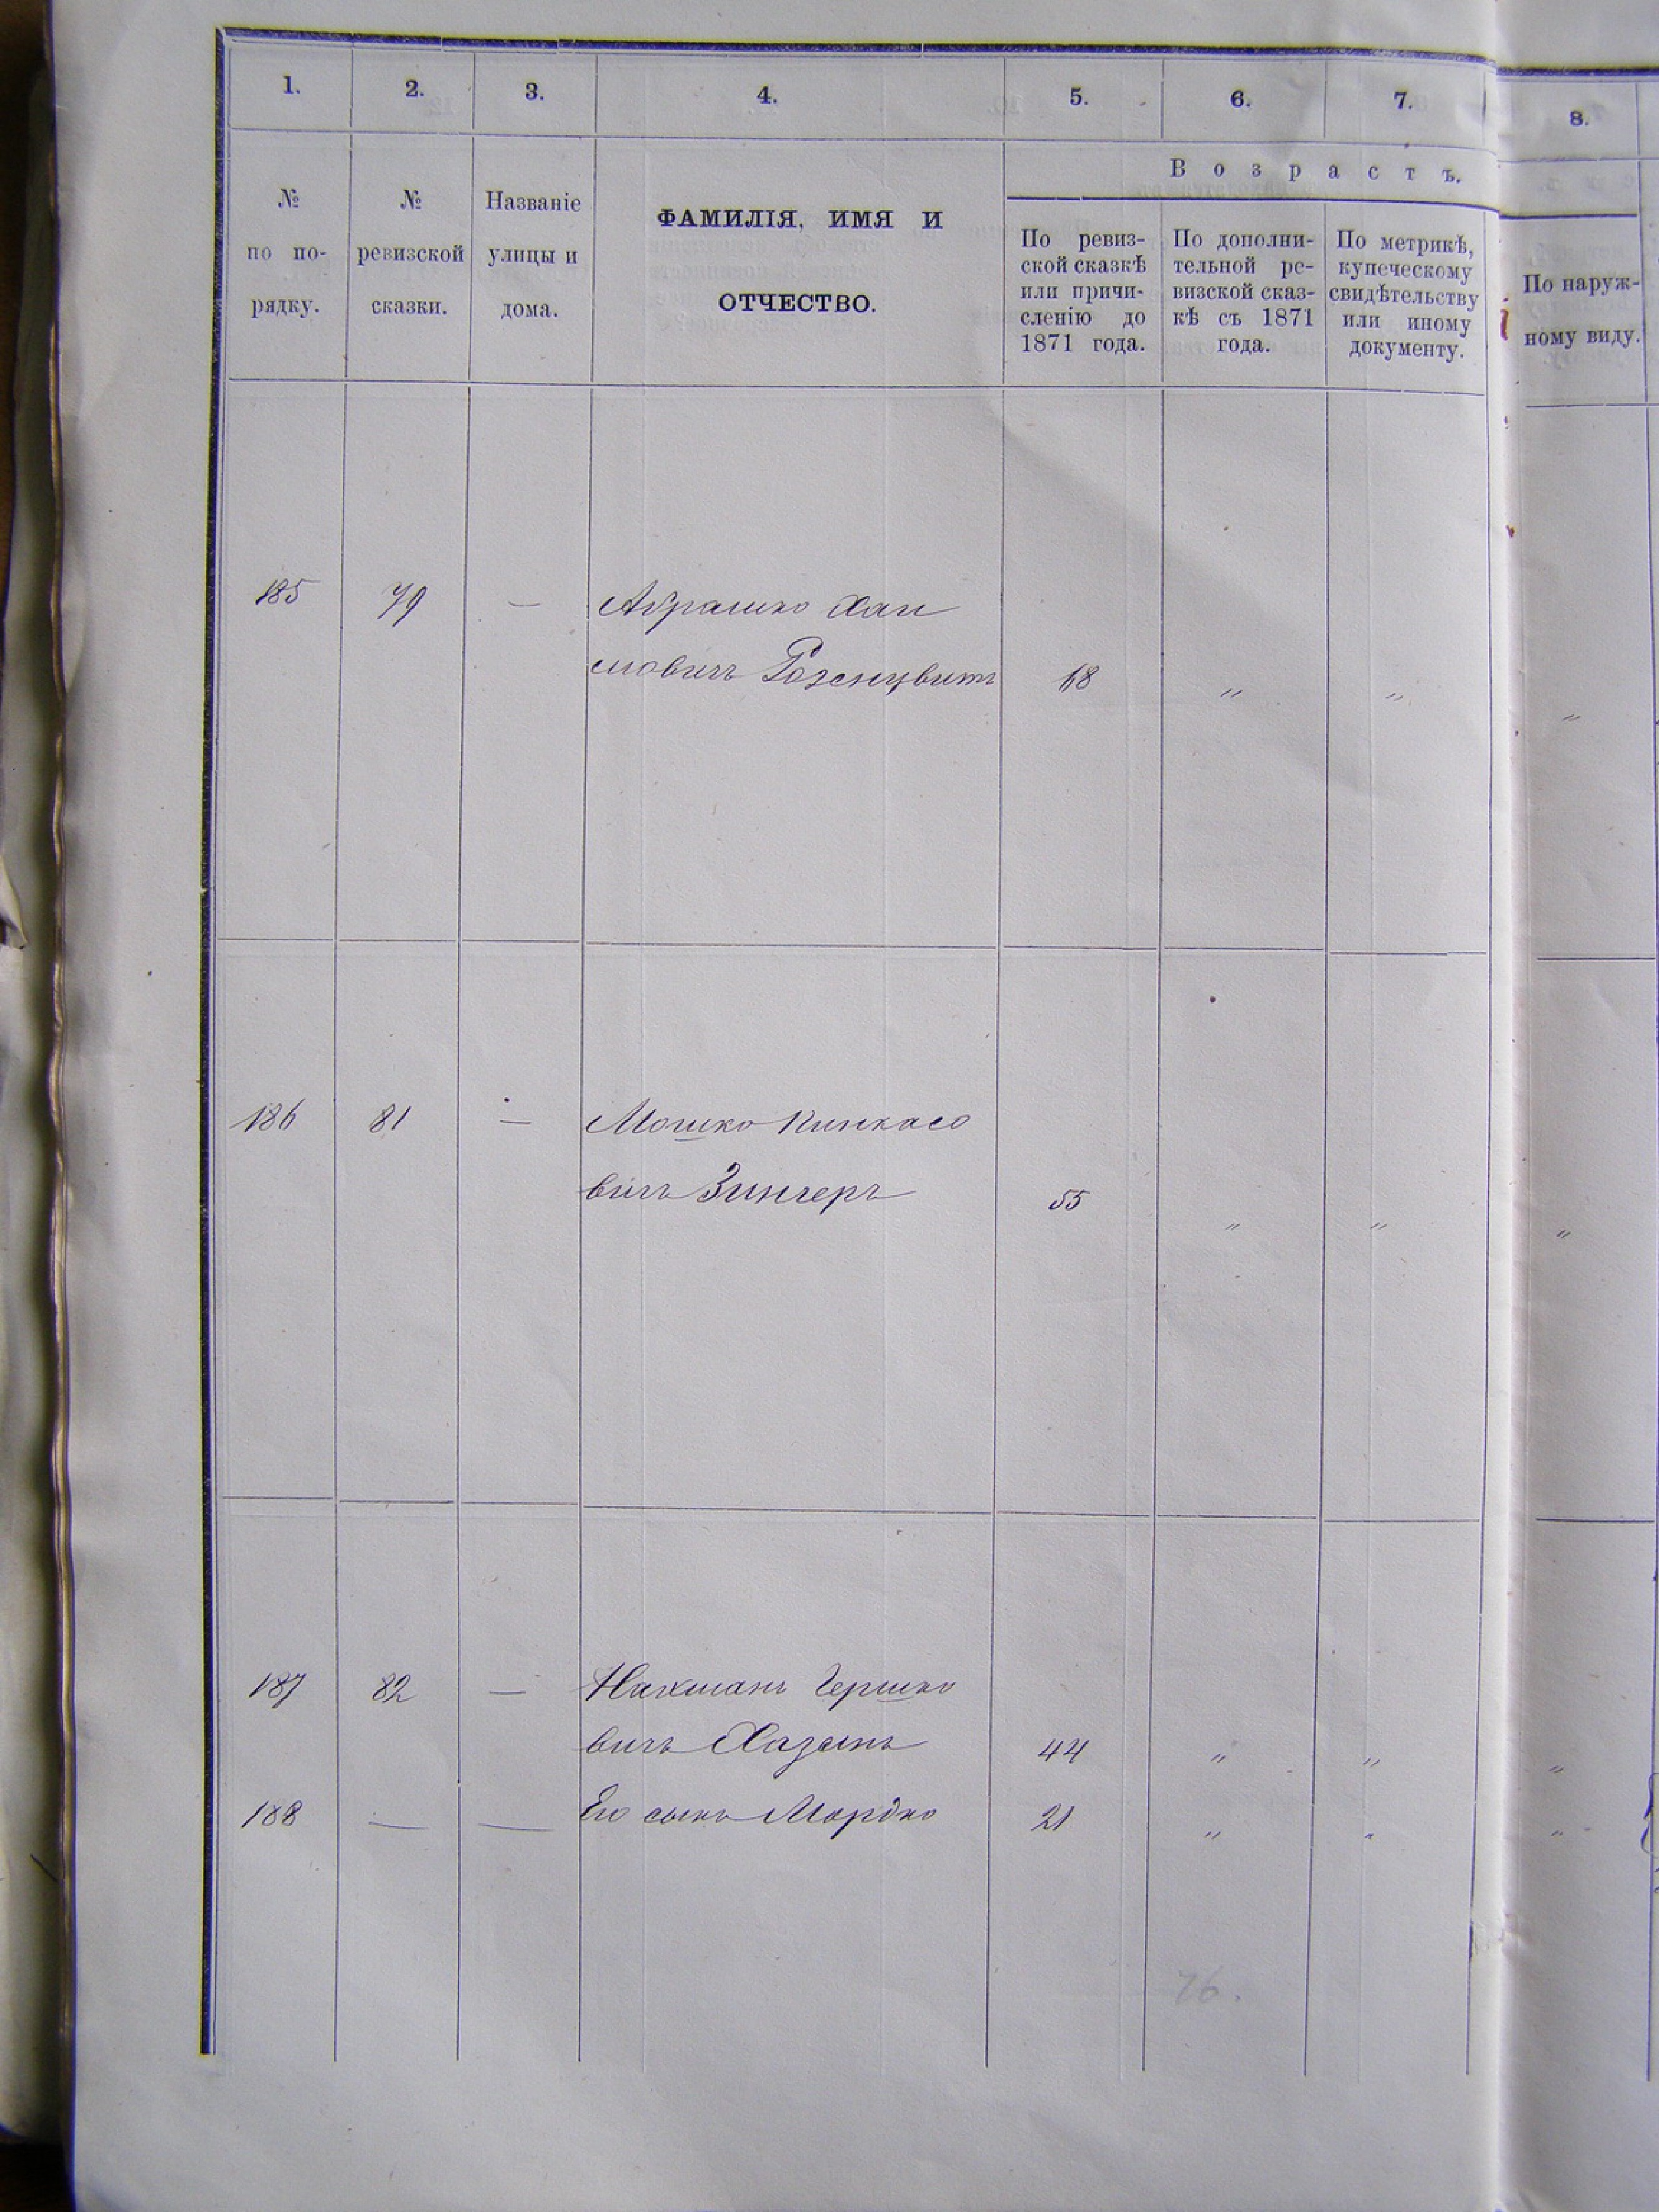 1. 2. 3. 4. 5. 6. 7. 8.
Возрастъ.
№ по по- рядку.
№ ревизской сказки.
Названіе улицы и дома.
ФАМИЛІЯ, ИМЯ И
ОТЧЕСТВО.
По ревиз-
ской сказкѣ
или причи-
сленію до
1871 года.
По дополни-
тельной ре-
визской сказ-
кѣ съ 1871
года.
По метрикѣ,
купеческому
свидѣтельству
или иному
документу.
По наруж-
ному виду.
185 79 — Абрашко Хаи
мовичъ Розенцвитъ 68 " " "
186 81 — Мошко Пинкасо
вичъ Зингеръ 55 " " "
187 82 — Нахманъ Гершко
вичъ Хазинъ 44 " " "
188 — — Его сынъ Мордко 21 " " "
76.